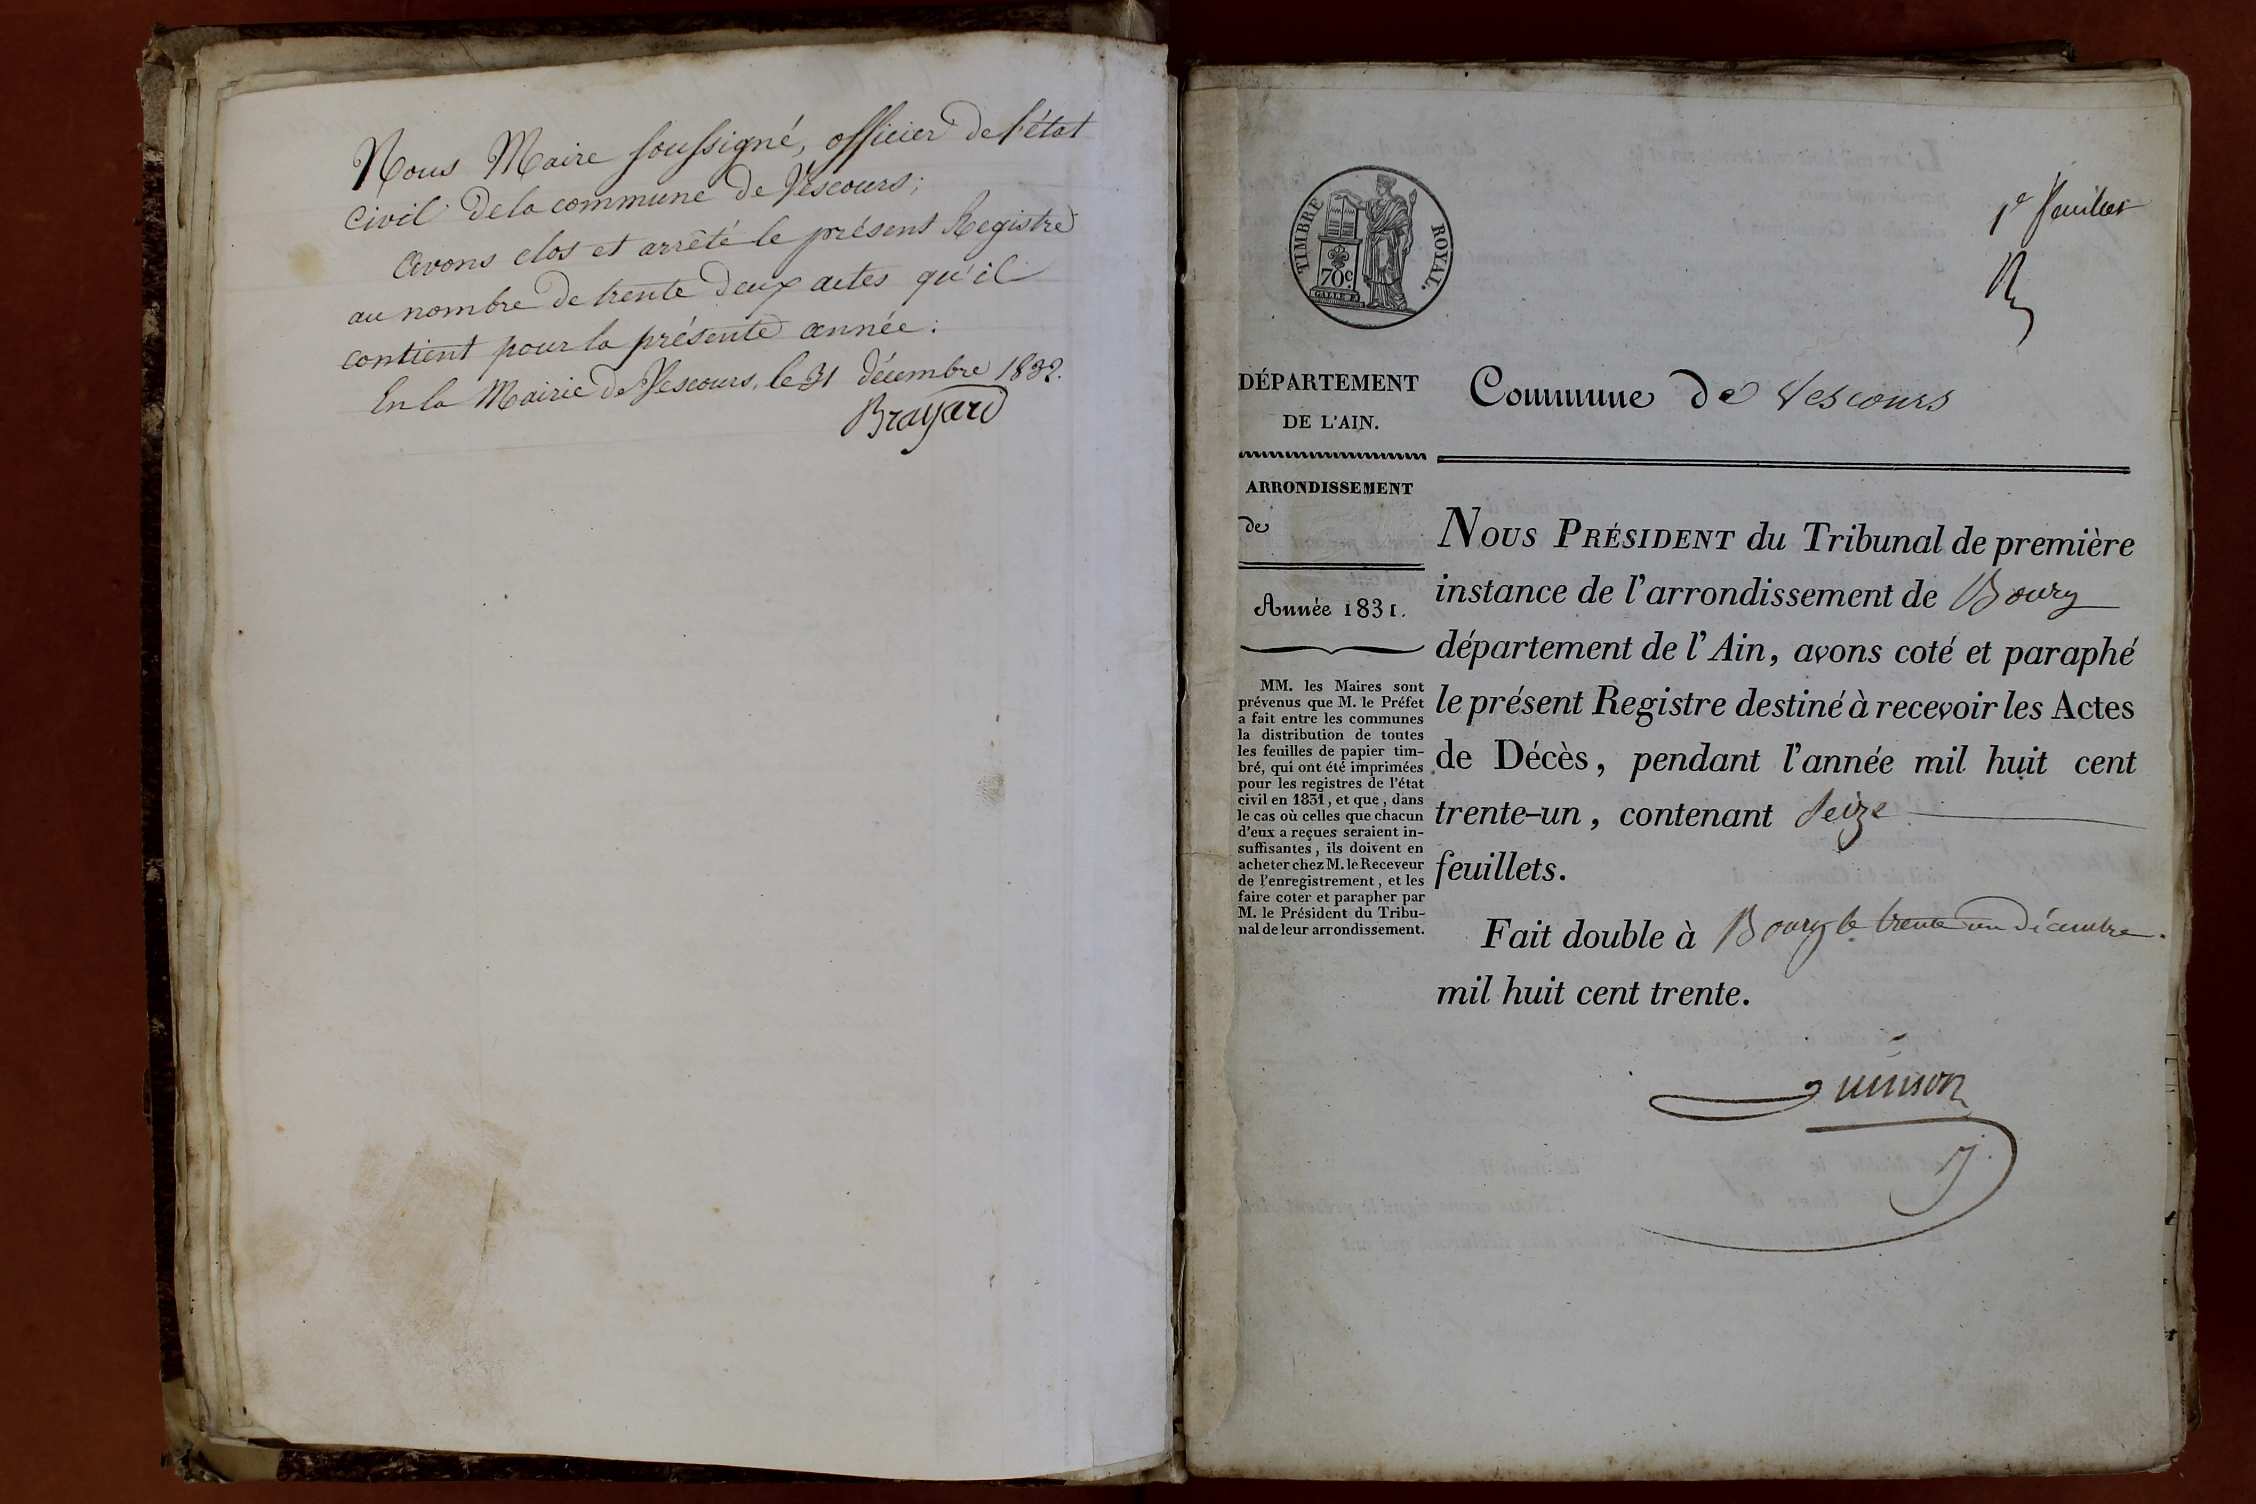 Nous Maire soussigné, officier de l'état
civil de la commune de Vescours;
avons clos et arrêté le présent Registre
au nombre de trente deux actes qu'il
contient pour la présente année.
En la Mairie de Vescours, le 31 décembre 1832.
Brayard
TIMBRE ROYAL.
70c.
1er feuillet
DÉPARTEMENT
DE L'AIN.
Commune de Vescours
ARRONDISSEMENT
de
Année 1831.
MM. les Maires sont
prévenus que M. le Préfet
a fait entre les communes
la distribution de toutes
les feuilles de papier tim-
bré, qui ont été imprimées
pour les registres de l'état
civil en 1831, et que, dans
le cas où celles que chacun
d'eux a reçues seraient in-
suffisantes, ils doivent en
acheter chez M. le Receveur
de l'enregistrement, et les
faire coter et parapher par
M. le Président du Tribu-
nal de leur arrondissement.
NOUS PRÉSIDENT du Tribunal de première
instance de l'arrondissement de Bourg
département de l'Ain, avons coté et paraphé
le présent Registre destiné à recevoir les Actes
de Décès, pendant l'année mil huit cent
trente-un, contenant Seize
feuillets.
Fait double à Bourg le trente un décembre
mil huit cent trente.